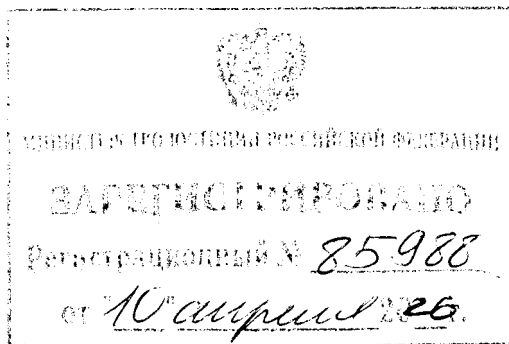 МИНИСТЕРСТВО ЮСТИЦИИ РОССИЙСКОЙ ФЕДЕРАЦИИ
ЗАРЕГИСТРИРОВАНО
Регистрационный № 85988
от "10" апреля 2026 г.